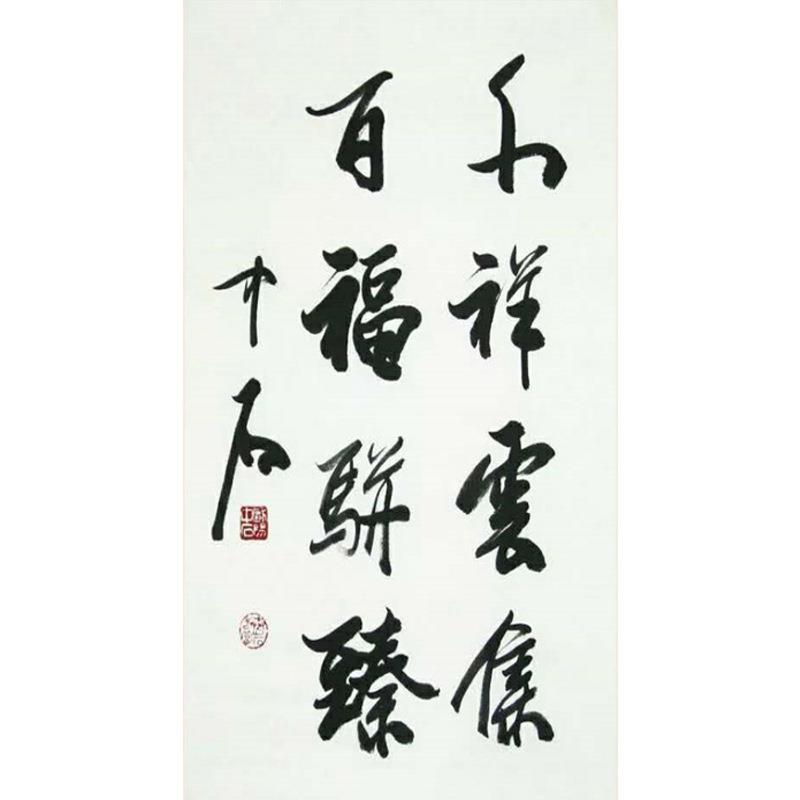 千祥雲集
百福駢臻
中石